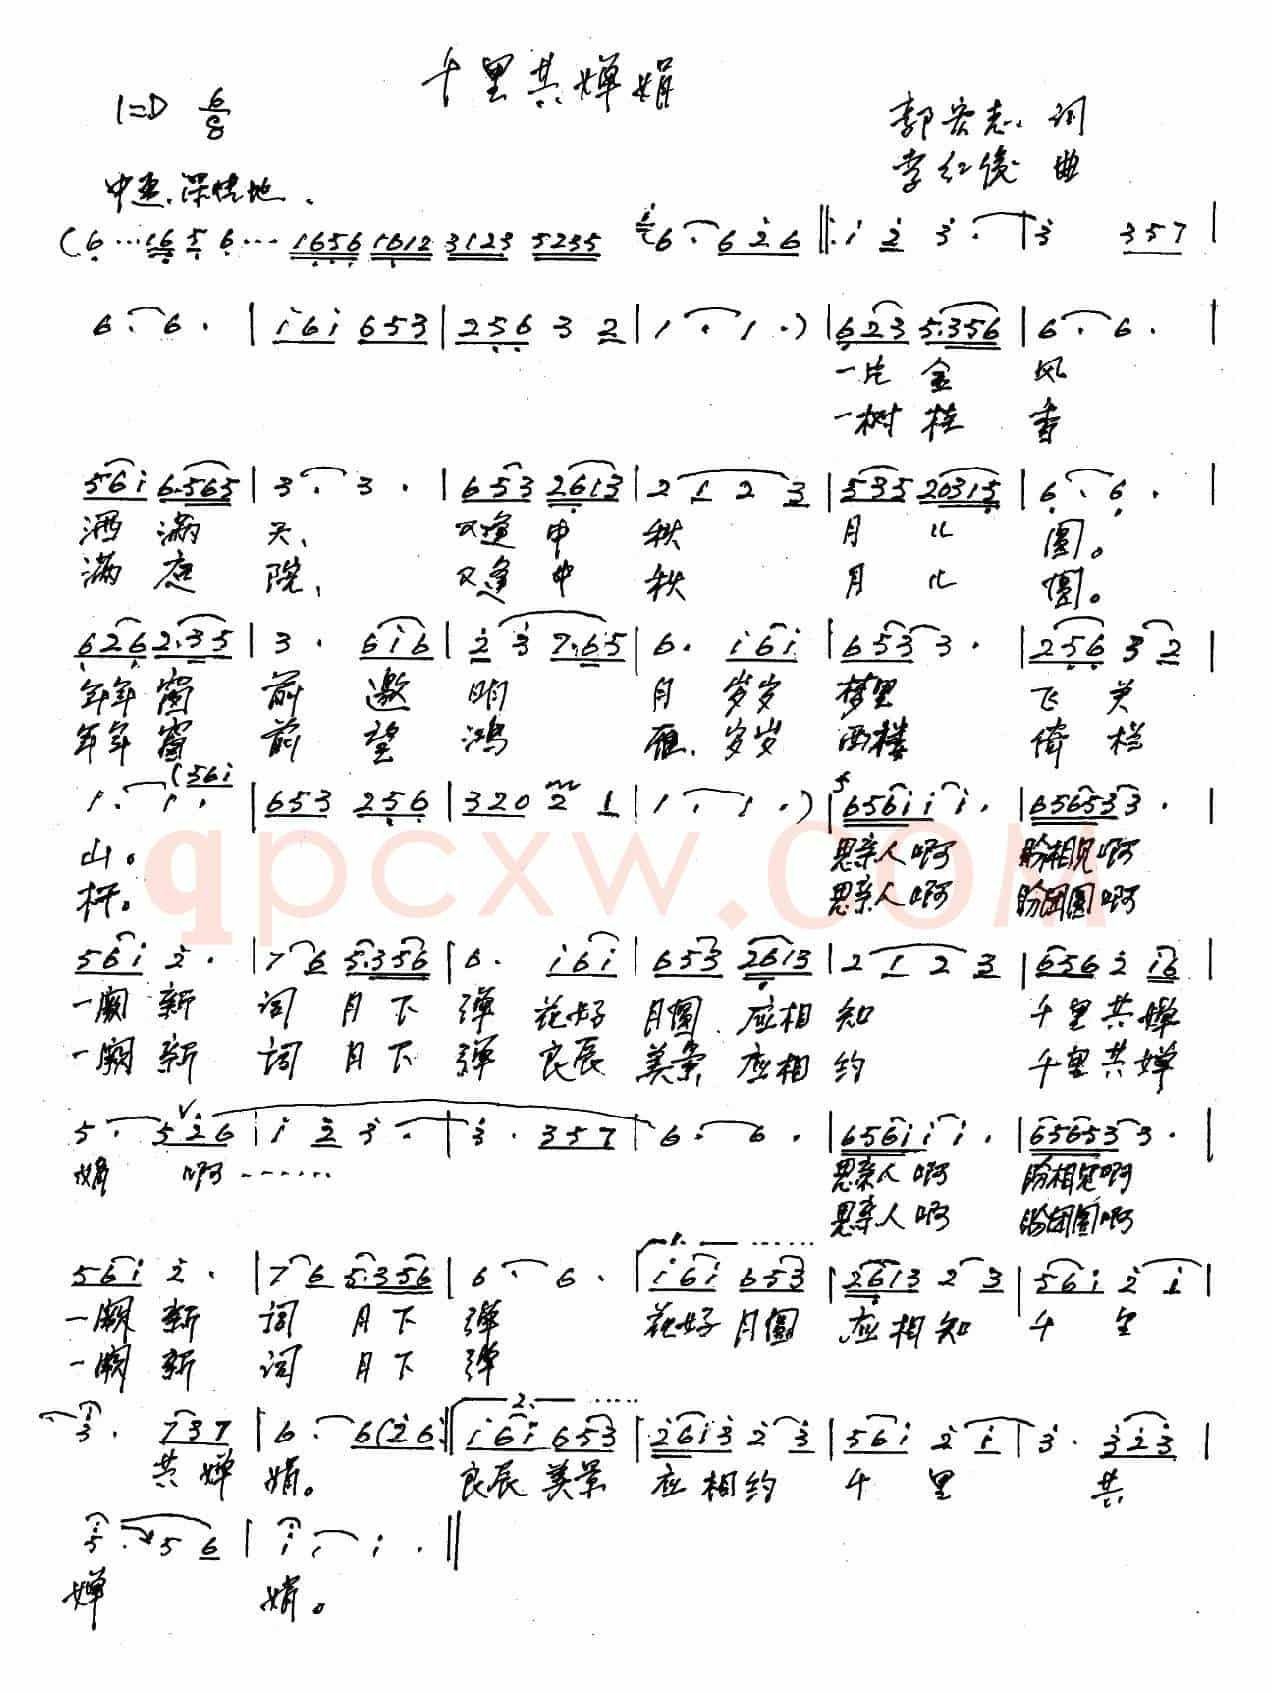 千里共婵娟
1=D 6/8
郭宏志、词
李红俊 曲
中速、深情地、
(6···16 5 6··· 1656 1612 3123 5235 i 6· 6 2 6 ‖: i 2 3· | 3 357 |
6· 6· | i6i 653 | 256 3 2 | 1· 1·) | 623 5·356 | 6· 6· |
一片 金 风
一树 桂 香
56i 6·565 | 3· 3· | 653 2613 | 2 1 2 3 | 535 20315 | 6· 6· |
洒 满 天、 又逢 中 秋 月 儿 圆。
满 庭 院, 又逢 中 秋 月 儿 圆。
626 2·35 | 3· 6i6 | 2 3 7·65 | 6· i6i | 653 3· | 256 3 2 |
年年 窗 前 邀 明 月 岁岁 梦里 飞 关
年年 窗 前 望 鸿 雁、岁岁 西楼 倚 栏
1· 1· (56i | 653 256 | 320 2 1 | 1· 1·) | 656i i i· | 65653 3· |
山。 思亲人 啊 盼相见 啊
杆。 思亲人 啊 盼团圆 啊
qpcxw.COM
56i 2· | 7 6 5·356 | 6· i6i | 653 2613 | 2 1 2 3 | 656 2 i6 |
一阙 新 词 月 下 弹 花好 月圆、应相 知 千里共婵
一阙 新 词 月 下 弹 良辰 美景 应相 约 千里共婵
5· 5 2 6 | i 2 3· | 3· 357 | 6· 6· | 656i i i· | 65653 3· |
娟 啊······ 思亲人 啊 盼相见啊
思亲人 啊 盼团圆啊
56i 2· | 7 6 5·356 | 6· 6· | 1.······ i6i 653 | 2613 2 3 | 56i 2 i |
一阙 新 词 月 下 弹 花好 月圆 应相知 千 里
一阙 新 词 月 下 弹
3· 737 | 6· 6(26 :‖ 2.······ i6i 653 | 26i3 2 3 | 56i 2 i | 3· 323 |
共 婵 娟。 良辰 美景 应 相约 千 里 共
5· 5 6 | i· i· ‖
婵 娟。